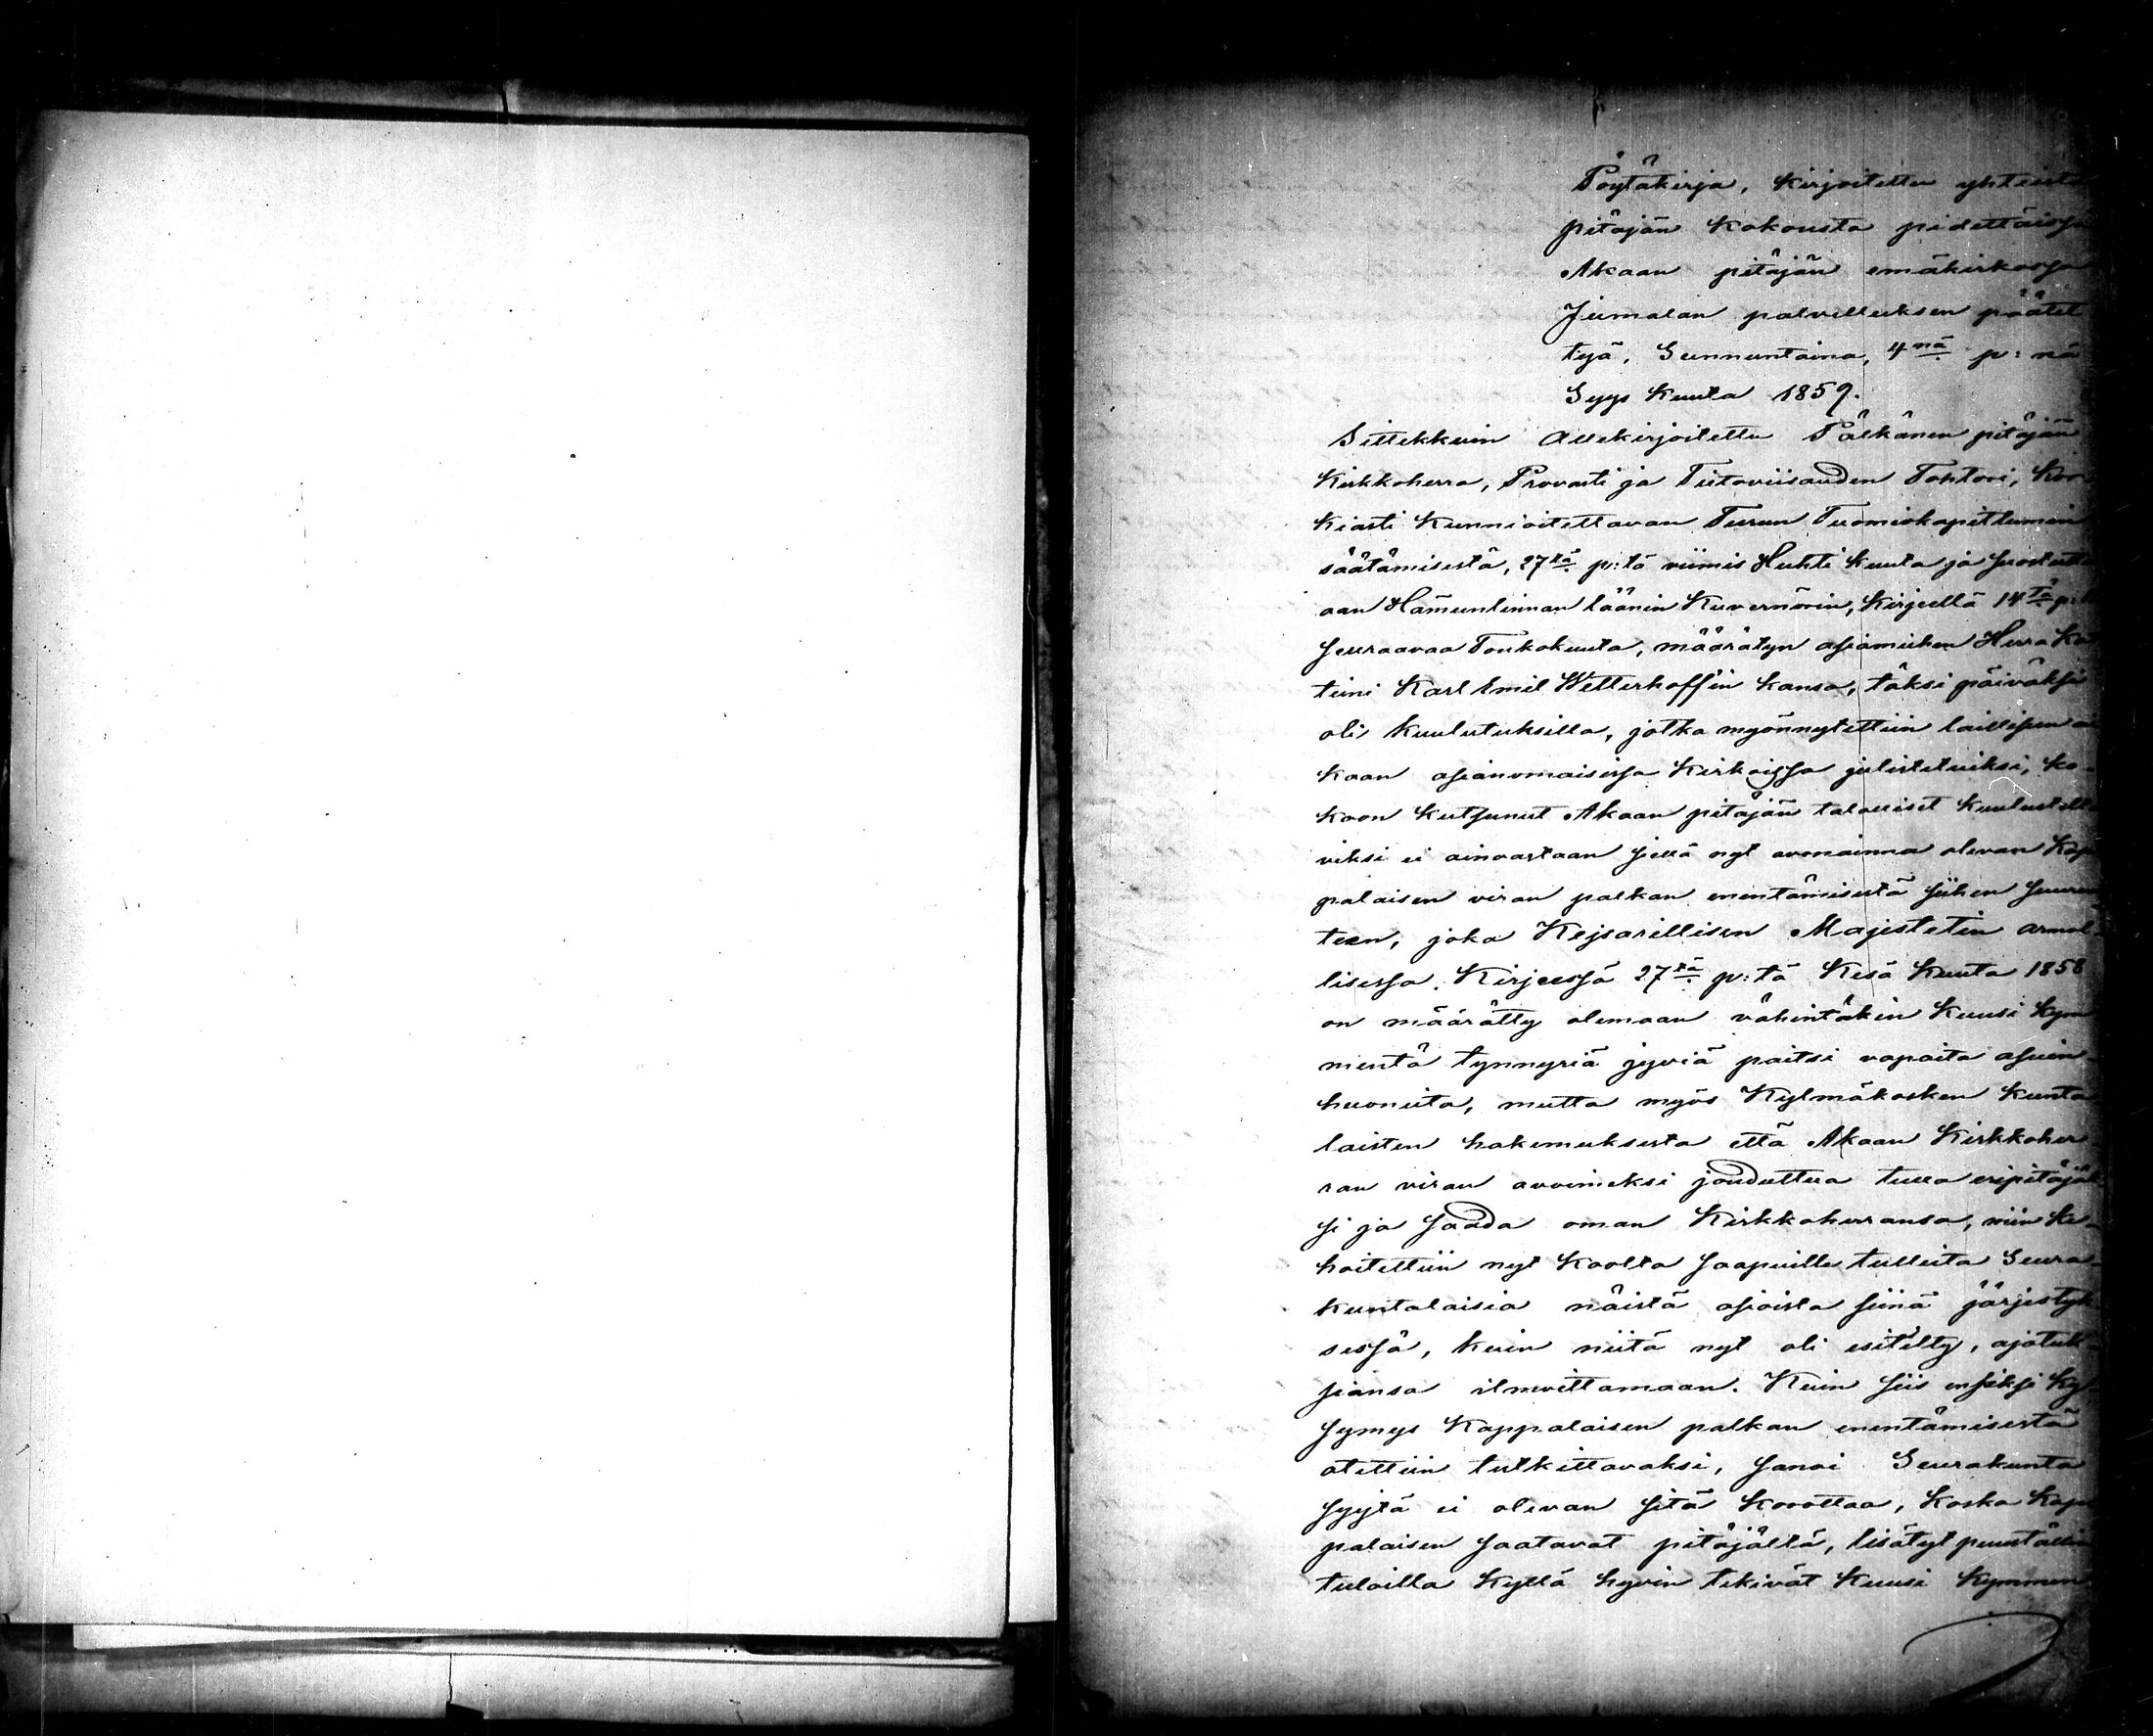 Pöytäkirja, Kirjoitettu yhteistä
pitäjän Kokousta pidettäissä
Akaan pitäjän emäkirkossa
Jumalan palvelluksen päätet
tyä, Sunnuntaina, 4nä p:nä
Syys Kuuta 1859.
Sittekkuin allekirjoitettu Pälkänen pitäjän
Kirkkoherra, Provasti ja Tiitoviisauden Tohtori, Kor
kiasti Kunnioitettavan Turun Tuomiokapittumin
säätämisestä, 27tä p:tä viimis Huhti Kuuta ja
aan Hämeenlinnan läänin Kuvernörin, Kirjeellä 14tä p:tä
seuraavaa Toukokuuta, määrätyn asiamiehen Herra Kap
teini Karl Emil Wetterhoff'in kansa, täksi päiväksi
oli Kuulutuksilla, jotka myönnytettiin laillisen ai
kaan asianomaisissa Kirkoissa julistetuiksi, ko-
koon Kutsunut Akaan pitäjän talolliset Kuulustelta
viksi ei ainoastaan siellä nyt avonainna olevan Kap
palaisen viran palkan enentämisestä siihen suuruu
teen, joka Kejsarillisen Majestetin armol-
lisessa Kirjeessä 27tä p:tä Kesä Kuuta 1858
on määrätty olemaan vähintäkin Kuusi Kym
mentä tynnyriä jyviä paitsi vapaita asuin-
huoneita, mutta myös Kylmäkosken Kunta
laisten hakemuksesta että Akaan Kirkkoher-
ran viran avoimeksi jouduttua tulla eripitäjäk-
si ja saada oman Kirkkoherransa, niin ke-
hoitettiin nyt Koolta saapuille tulleita Seura-
kuntalaisia näistä asioista siinä järjestyk
sessä, kuin niitä nyt oli esitelty, ajatuk-
siansa ilmoittamaan. Kuin siis ensiksi Ky-
symys Kappalaisen palkan enentämisestä
otettiin tutkittavaksi, sanoi Seurakunta
syytä ei olevan sitä Korottaa, Koska Kap
palaisen saatavat pitäjältä, lisätyt puuställin
tuloilla Kyllä hyvin tekivät Kuusi Kymmen